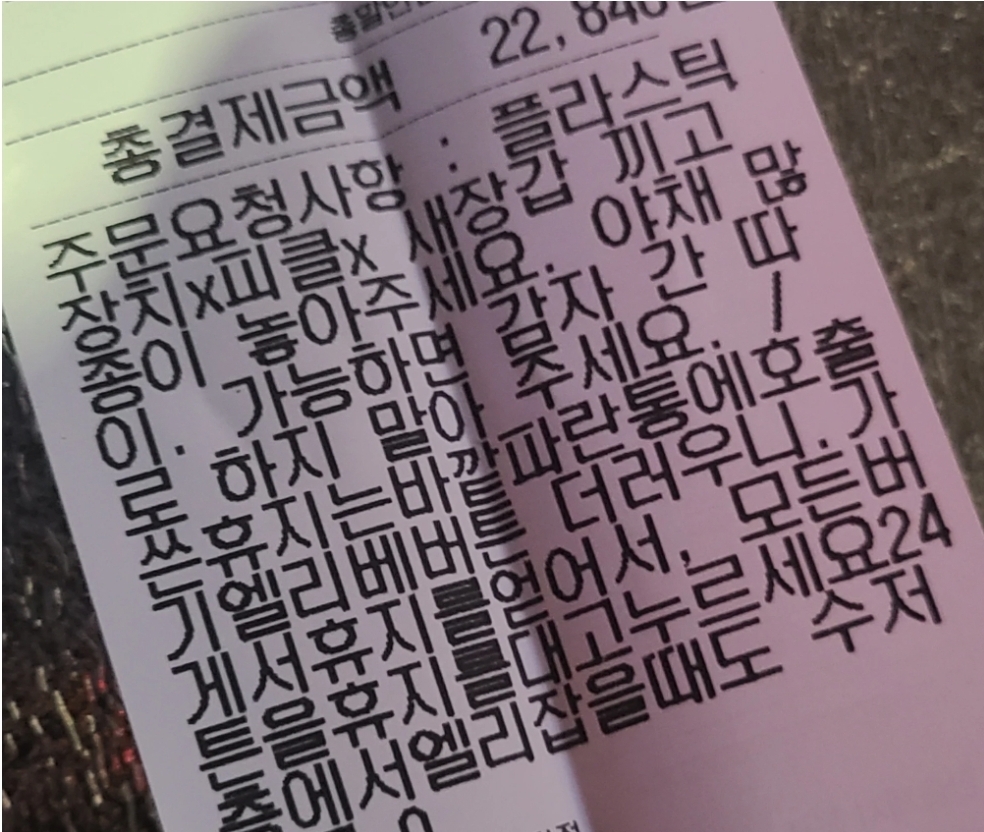 총결제금액
주문요청사항 : 플라스틱
장치x피클x 새장갑 끼고
종이 놓아주세요. 야채 많
이. 가능하면 감자 간 따
로 하지 말아 주세요. /
쓴휴지는바깥파란통에호출
기엘리베버튼 더러우니. 가
게서휴지를얻어서, 모든버
튼을휴지를대고누르세요24
층에서엘리잡을때도 수저